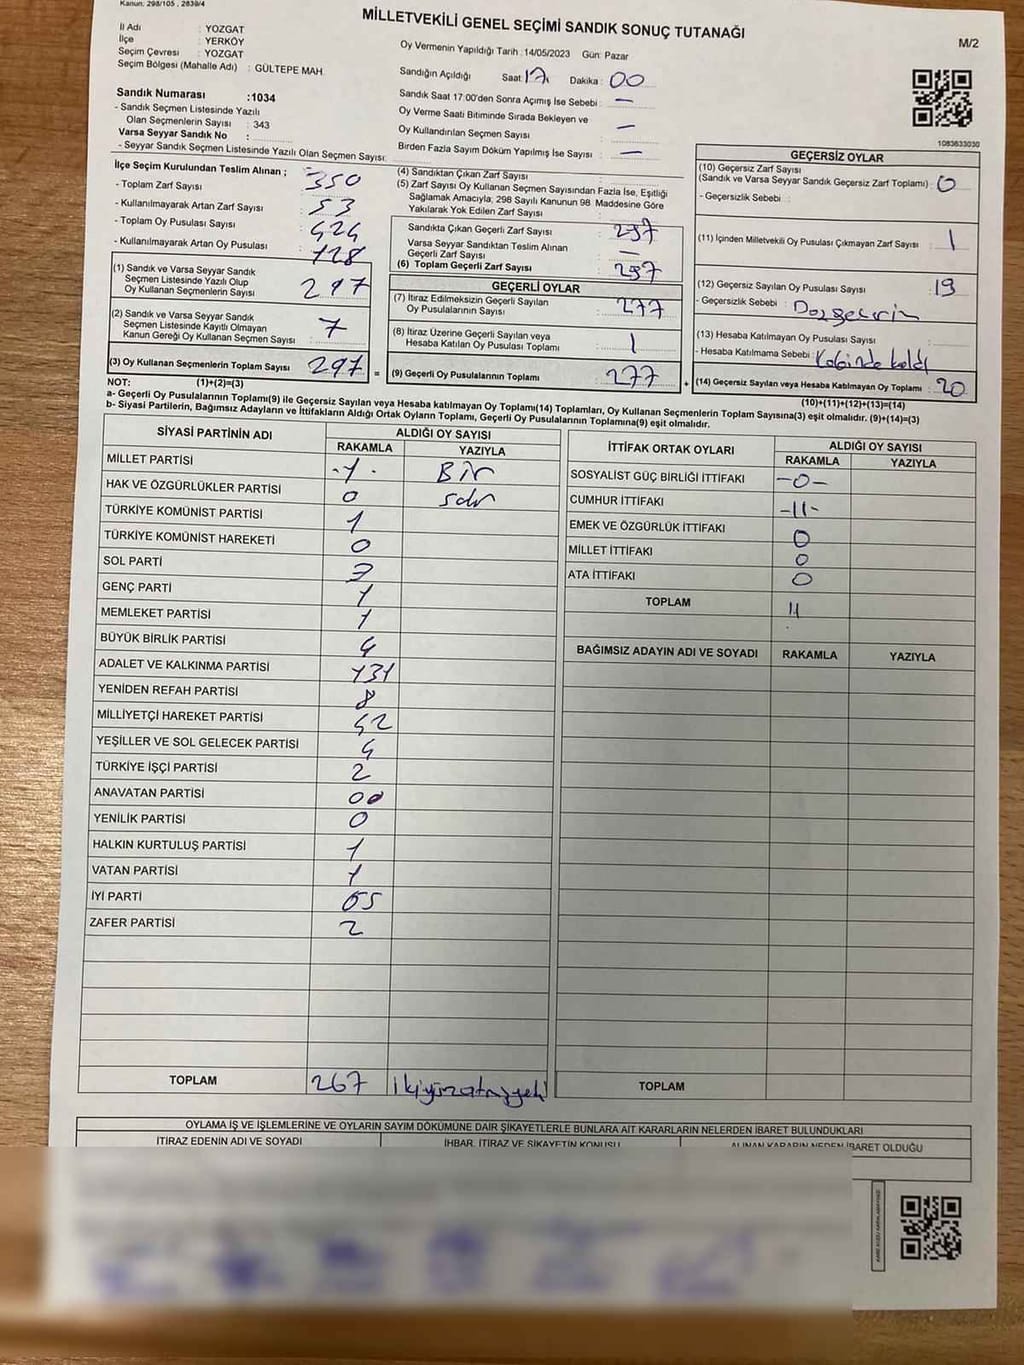 Kanun: 298/105 , 2839/4
MİLLETVEKİLİ GENEL SEÇİMİ SANDIK SONUÇ TUTANAĞI
M/2
İl Adı : YOZGAT
İlçe : YERKÖY
Seçim Çevresi : YOZGAT
Seçim Bölgesi (Mahalle Adı) : GÜLTEPE MAH.
Sandık Numarası :1034
- Sandık Seçmen Listesinde Yazılı
Olan Seçmenlerin Sayısı : 343
Varsa Seyyar Sandık No :
- Seyyar Sandık Seçmen Listesinde Yazılı Olan Seçmen Sayısı:
Oy Vermenin Yapıldığı Tarih :14/05/2023 Gün: Pazar
Sandığın Açıldığı Saat 17 Dakika : 00
Sandık Saat 17:00'den Sonra Açımış İse Sebebi : —
Oy Verme Saati Bitiminde Sırada Bekleyen ve
Oy Kullandırılan Seçmen Sayısı : —
Birden Fazla Sayım Döküm Yapılmış İse Sayısı : —
1083633030
İlçe Seçim Kurulundan Teslim Alınan ;
- Toplam Zarf Sayısı : 350
- Kullanılmayarak Artan Zarf Sayısı : 53
- Toplam Oy Pusulası Sayısı : 424
- Kullanılmayarak Artan Oy Pusulası : 128
(1) Sandık ve Varsa Seyyar Sandık
Seçmen Listesinde Yazılı Olup
Oy Kullanan Seçmenlerin Sayısı : 297
(2) Sandık ve Varsa Seyyar Sandık
Seçmen Listesinde Kayıtlı Olmayan
Kanun Gereği Oy Kullanan Seçmen Sayısı : 7
(3) Oy Kullanan Seçmenlerin Toplam Sayısı 297 =
(4) Sandıktan Çıkan Zarf Sayısı :
(5) Zarf Sayısı Oy Kullanan Seçmen Sayısından Fazla İse, Eşitliği
Sağlamak Amacıyla; 298 Sayılı Kanunun 98 Maddesine Göre
Yakılarak Yok Edilen Zarf Sayısı :
Sandıkta Çıkan Geçerli Zarf Sayısı : 297
Varsa Seyyar Sandıktan Teslim Alınan
Geçerli Zarf Sayısı : —
(6) Toplam Geçerli Zarf Sayısı : 297
GEÇERLİ OYLAR
(7) İtiraz Edilmeksizin Geçerli Sayılan
Oy Pusulalarının Sayısı : 277
(8) İtiraz Üzerine Geçerli Sayılan veya
Hesaba Katılan Oy Pusulası Toplamı : 1
(9) Geçerli Oy Pusulalarının Toplamı : 277 +
GEÇERSİZ OYLAR
(10) Geçersiz Zarf Sayısı
(Sandık ve Varsa Seyyar Sandık Geçersiz Zarf Toplamı) : 0
- Geçersizlik Sebebi :
(11) İçinden Milletvekili Oy Pusulası Çıkmayan Zarf Sayısı : 1
(12) Geçersiz Sayılan Oy Pusulası Sayısı : 19
- Geçersizlik Sebebi :
(13) Hesaba Katılmayan Oy Pusulası Sayısı :
- Hesaba Katılmama Sebebi : Kabinde kaldı
(14) Geçersiz Sayılan veya Hesaba Katılmayan Oy Toplamı : 20
NOT: (1)+(2)=(3)
(10)+(11)+(12)+(13)=(14)
a- Geçerli Oy Pusulalarının Toplamı(9) ile Geçersiz Sayılan veya Hesaba katılmayan Oy Toplamı(14) Toplamları, Oy Kullanan Seçmenlerin Toplam Sayısına(3) eşit olmalıdır. (9)+(14)=(3)
b- Siyasi Partilerin, Bağımsız Adayların ve İttifakların Aldığı Ortak Oyların Toplamı, Geçerli Oy Pusulalarının Toplamına(9) eşit olmalıdır.
SİYASİ PARTİNİN ADI ALDIĞI OY SAYISI
RAKAMLA YAZIYLA
MİLLET PARTİSİ -1- Bir
HAK VE ÖZGÜRLÜKLER PARTİSİ 0 sıfır
TÜRKİYE KOMÜNİST PARTİSİ 1
TÜRKİYE KOMÜNİST HAREKETİ 0
SOL PARTİ
GENÇ PARTİ 1
MEMLEKET PARTİSİ 1
BÜYÜK BİRLİK PARTİSİ 4
ADALET VE KALKINMA PARTİSİ 131
YENİDEN REFAH PARTİSİ 8
MİLLİYETÇİ HAREKET PARTİSİ 42
YEŞİLLER VE SOL GELECEK PARTİSİ 4
TÜRKİYE İŞÇİ PARTİSİ 2
ANAVATAN PARTİSİ 00
YENİLİK PARTİSİ 0
HALKIN KURTULUŞ PARTİSİ 1
VATAN PARTİSİ 1
İYİ PARTİ 65
ZAFER PARTİSİ 2
TOPLAM 267 ikiyüzatmışyedi
İTTİFAK ORTAK OYLARI ALDIĞI OY SAYISI
RAKAMLA YAZIYLA
SOSYALİST GÜÇ BİRLİĞİ İTTİFAKI -0-
CUMHUR İTTİFAKI -11-
EMEK VE ÖZGÜRLÜK İTTİFAKI 0
MİLLET İTTİFAKI 0
ATA İTTİFAKI 0
TOPLAM 11
BAĞIMSIZ ADAYIN ADI VE SOYADI RAKAMLA YAZIYLA
TOPLAM
OYLAMA İŞ VE İŞLEMLERİNE VE OYLARIN SAYIM DÖKÜMÜNE DAİR ŞİKAYETLERLE BUNLARA AİT KARARLARIN NELERDEN İBARET BULUNDUKLARI
İTİRAZ EDENİN ADI VE SOYADI İHBAR, İTİRAZ VE ŞİKAYETİN KONUSU ALINAN KARARIN NEDEN İBARET OLDUĞU